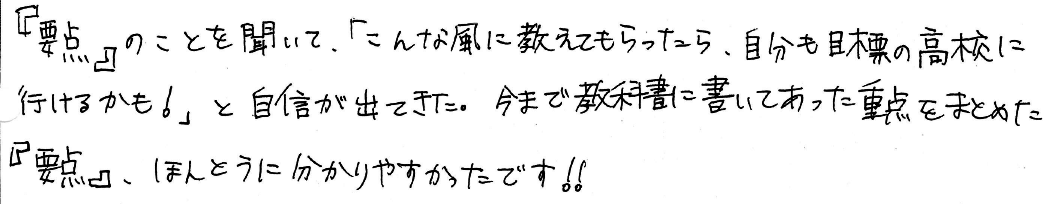 『要点』のことを聞いて、「こんな風に教えてもらったら、自分も目標の高校に
行けるかも!」と自信が出てきた。今まで教科書に書いてあった重点をまとめた
『要点』、ほんとうに分かりやすかったです!!